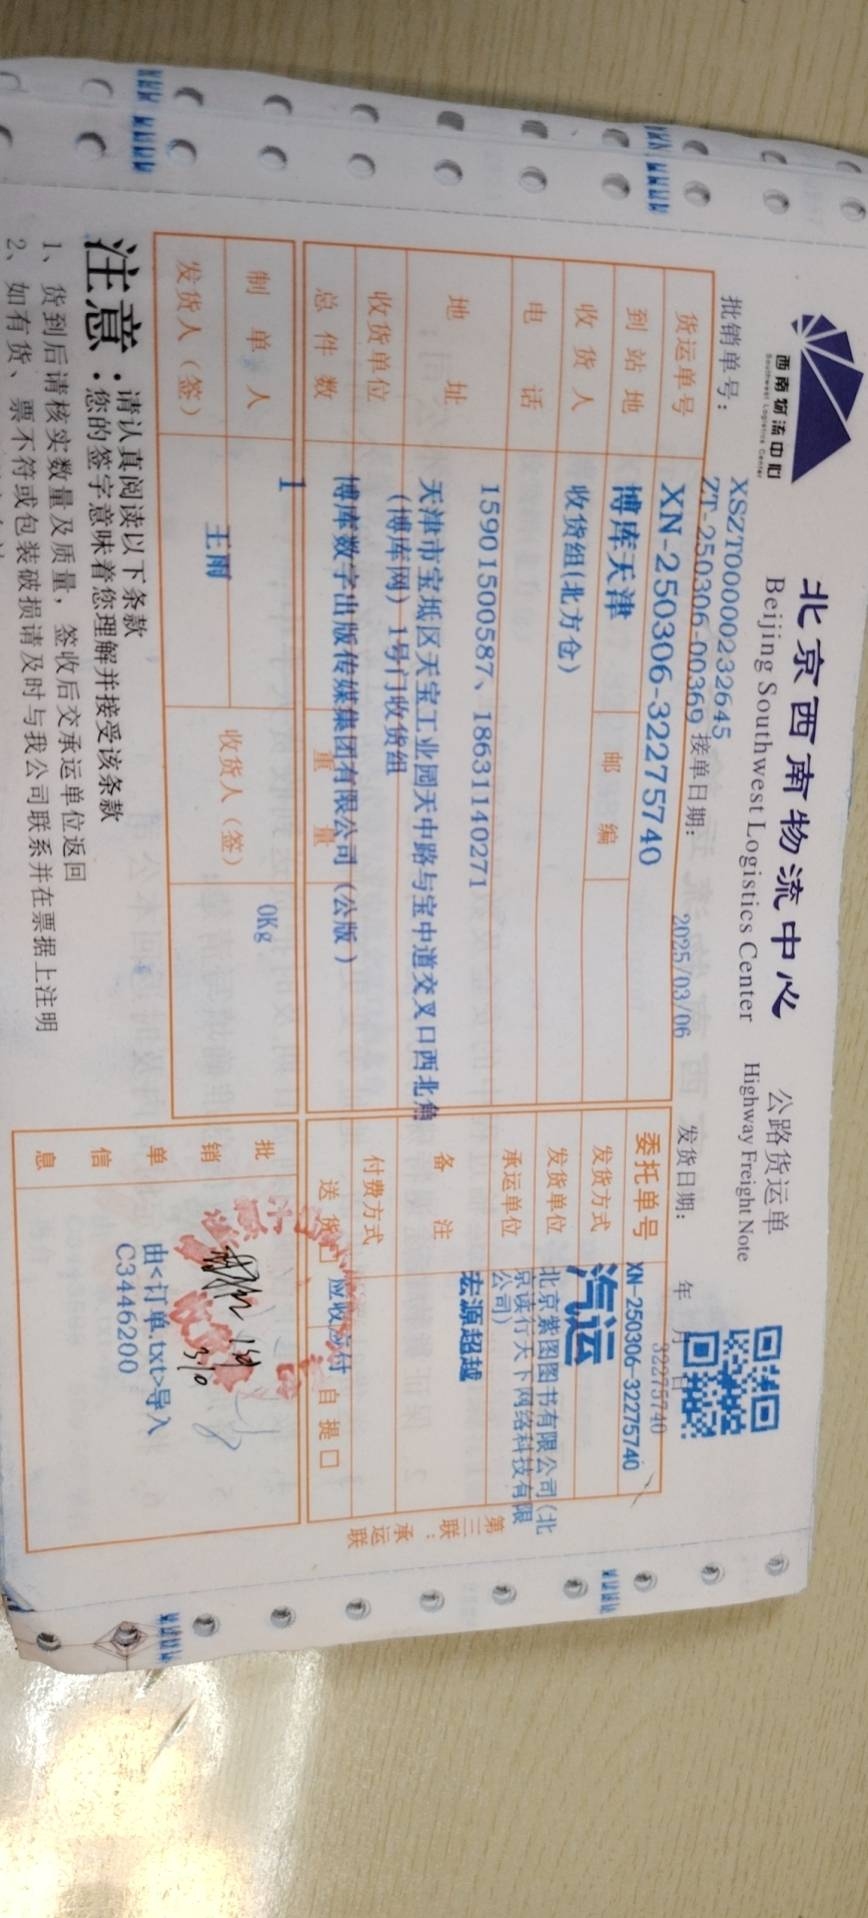 西南物流中心
Southwest Logistics Center
北京西南物流中心
Beijing Southwest Logistics Center
公路货运单
Highway Freight Note
批销单号：
XSZT00000232645
ZT-250306-00369
接单日期：
2025/03/06
发货日期： 年 月 日
32275740
货运单号 XN-250306-32275740
委托单号 XN-250306-32275740
到站地 博库天津 邮编
发货方式 汽运
收货人 收货组(北方仓)
发货单位 北京紫图图书有限公司(北
京读行天下网络科技有限
公司)
电话 15901500587、18631140271
承运单位 宏源超越
地址 天津市宝坻区天宝工业园天中路与宝中道交叉口西北角
(博库网) 1号门收货组
备注
收货单位 博库数字出版传媒集团有限公司（公版）
付费方式
总件数 1
重量 0Kg
送货口 应收应付 自提口
制单人 王雨
收货人（签）
发货人（签）
批销单信息
由<订单.txt>导入
C3446200
3/10
第三联：承运联
注意：
请认真阅读以下条款
您的签字意味着您理解并接受该条款
1、货到后请核实数量及质量，签收后交承运单位返回
2、如有货、票不符或包装破损请及时与我公司联系并在票据上注明